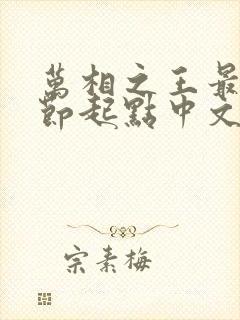 萬相之王最
節起點中文
宗素梅